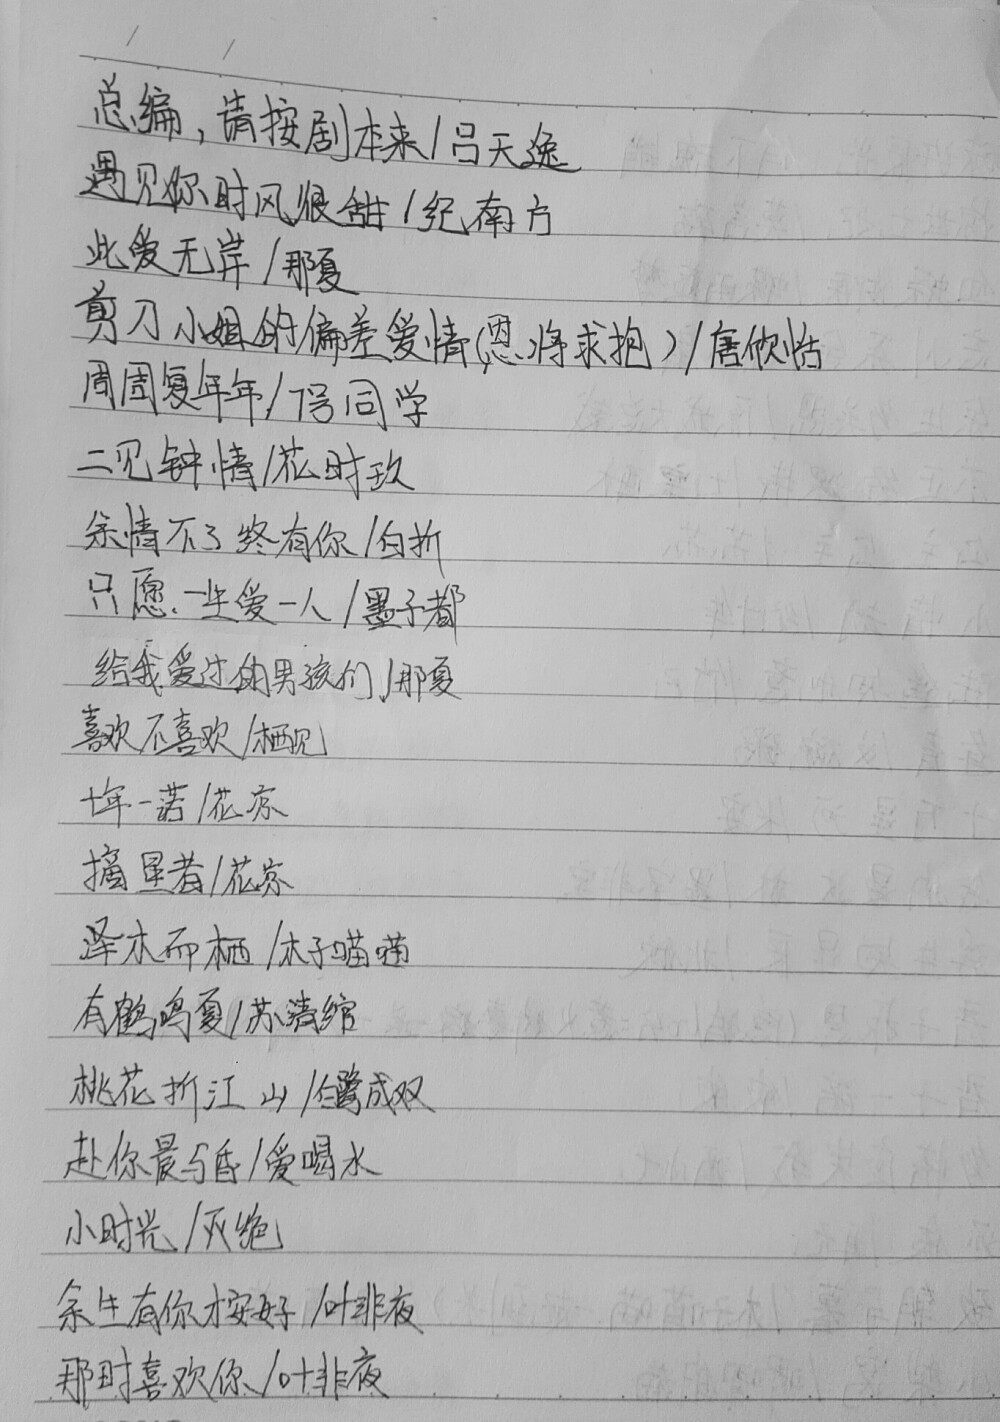 总编，请按剧本来/吕天逸
遇见你时风很甜/纪南方
此爱无岸/那夏
剪刀小姐的偏差爱情(恩将求抱)/唐欣恬
周周复年年/阿司学
二见钟情/花时玖
余情不了终有你/白折
只愿一生爱一人/墨子都
给我爱过的男孩们/那夏
喜欢不喜欢/栖见
十年一诺/花凉
摘星者/花凉
泽木而栖/木子喵喵
有鹤鸣夏/苏清绾
桃花折江山/白鹭成双
赴你晨与昏/爱喝水
小时光/灭绝
余生有你才安好/叶非夜
那时喜欢你/叶非夜